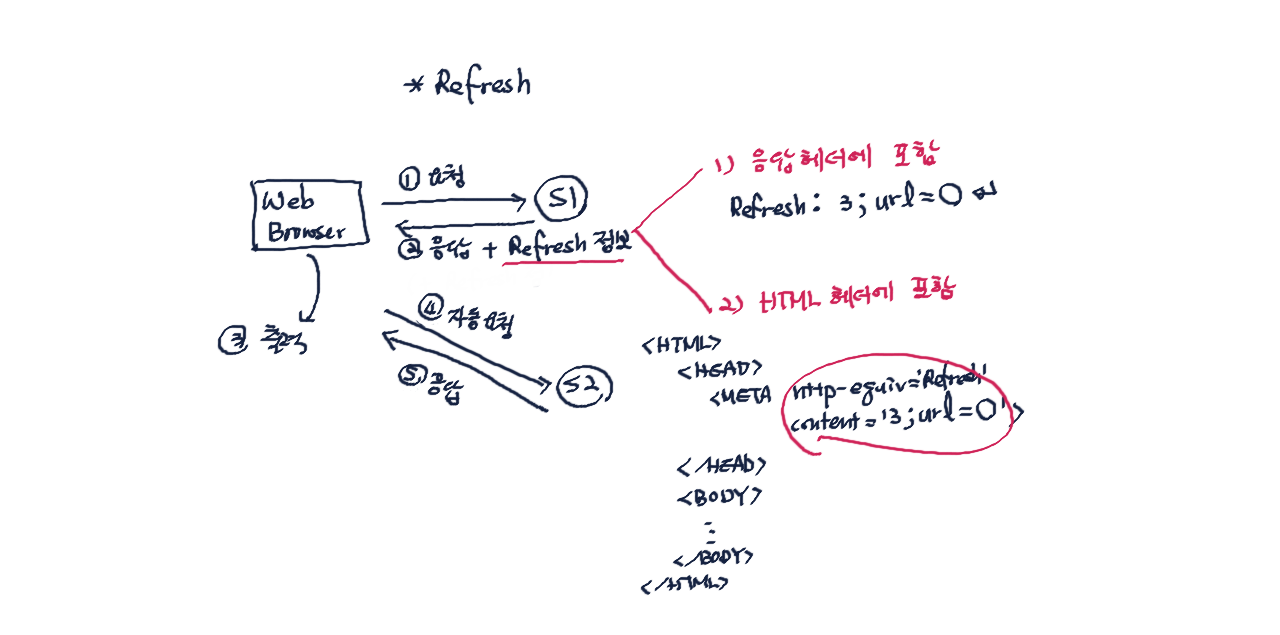 * Refresh
Web
Browser
① 요청
S1
② 응답 + Refresh 정보
③ 출력
④ 자동요청
⑤ 응답
S2
1) 응답헤더에 포함
Refresh: 3; url=O ↵
2) HTML 헤더에 포함
<HTML>
<HEAD>
<META http-equiv='Refresh'
content='3; url=O'>
</HEAD>
<BODY>
⋮
</BODY>
</HTML>